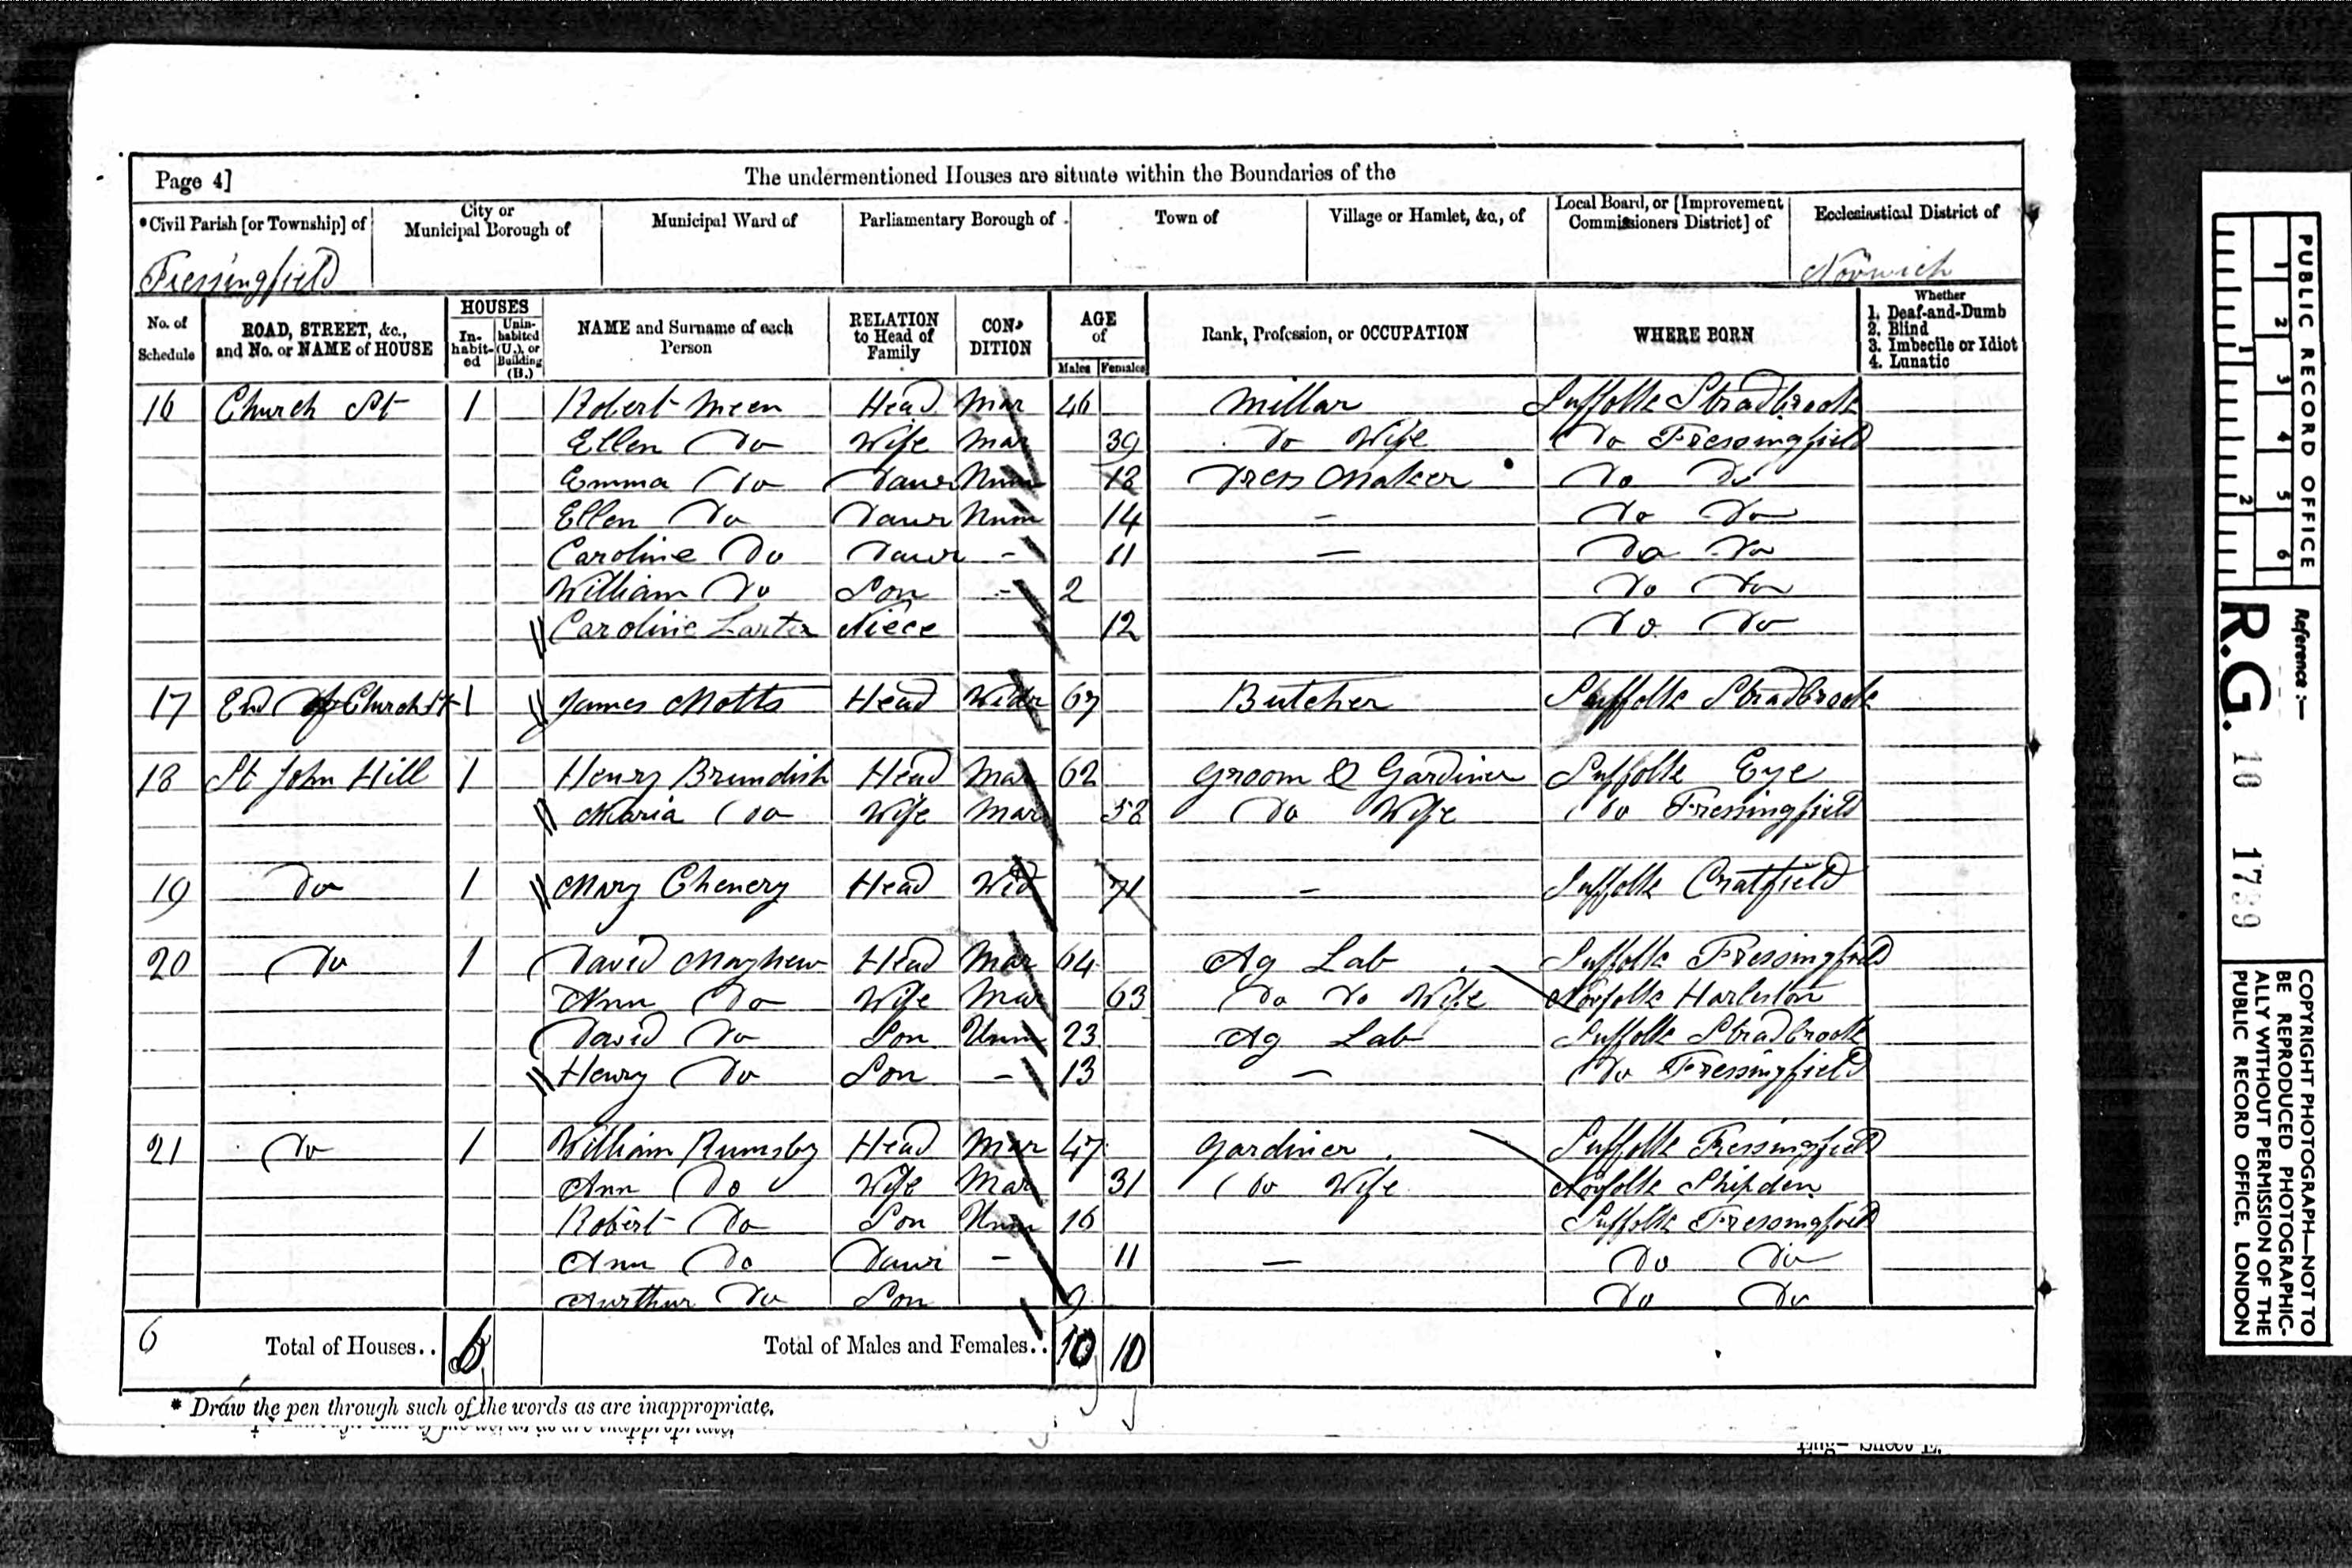 Page 4]
The undermentioned Houses are situate within the Boundaries of the
*Civil Parish [or Township] of
City or Municipal Borough of
Municipal Ward of
Parliamentary Borough of
Town of
Village or Hamlet, &c., of
Local Board, or [Improvement Commissioners District] of
Ecclesiastical District of
Fressingfield
Norwich
No. of Schedule
ROAD, STREET, &c., and No. or NAME of HOUSE
HOUSES
In-habit-ed
Unin-habited (U.), or Building (B.)
NAME and Surname of each Person
RELATION to Head of Family
CON-DITION
AGE of
Males Females
Rank, Profession, or OCCUPATION
WHERE BORN
Whether
1. Deaf-and-Dumb
2. Blind
3. Imbecile or Idiot
4. Lunatic
16 Church St 1 Robert Meen Head Mar 46 Millar Suffolk Stradbrook
Ellen Do Wife Mar 39 Do Wife Do Fressingfield
Emma Do Dawr Unm 18 Dress Maker Do Do
Ellen Do Dawr Unm 14 - Do Do
Caroline Do Dawr - 11 - Do Do
William Do Son - 2 Do Do
Caroline Larter Niece 12 Do Do
17 End of Church St 1 James Motts Head Widr 67 Butcher Suffolk Stradbrook
18 St John Hill 1 Henry Brundish Head Mar 62 Groom & Gardiner Suffolk Eye
Maria Do Wife Mar 58 Do Wife Do Fressingfield
19 Do 1 Mary Chenery Head Wid 71 - Suffolk Cratfield
20 Do 1 David Mayhew Head Mar 64 Ag Lab Suffolk Fressingfield
Ann Do Wife Mar 63 Do Do Wife Norfolk Harleston
David Do Son Unm 23 Ag Lab Suffolk Stradbrook
Henry Do Son - 13 - Do Fressingfield
21 Do 1 William Rumsby Head Mar 47 Gardiner Suffolk Fressingfield
Ann Do Wife Mar 31 Do Wife Norfolk Shipden
Robert Do Son Unm 16 Suffolk Fressingfield
Ann Do Dawr - 11 - Do Do
Aurthur Do Son 9 Do Do
6 Total of Houses.. 6 Total of Males and Females.. 10 10
* Draw the pen through such of the words as are inappropriate.
Eng— Sheet E.
PUBLIC RECORD OFFICE
1 2 3 4 5 6
1 2
Reference :—
R.G. 10 1739
COPYRIGHT PHOTOGRAPH—NOT TO
BE REPRODUCED PHOTOGRAPHIC-
ALLY WITHOUT PERMISSION OF THE
PUBLIC RECORD OFFICE, LONDON